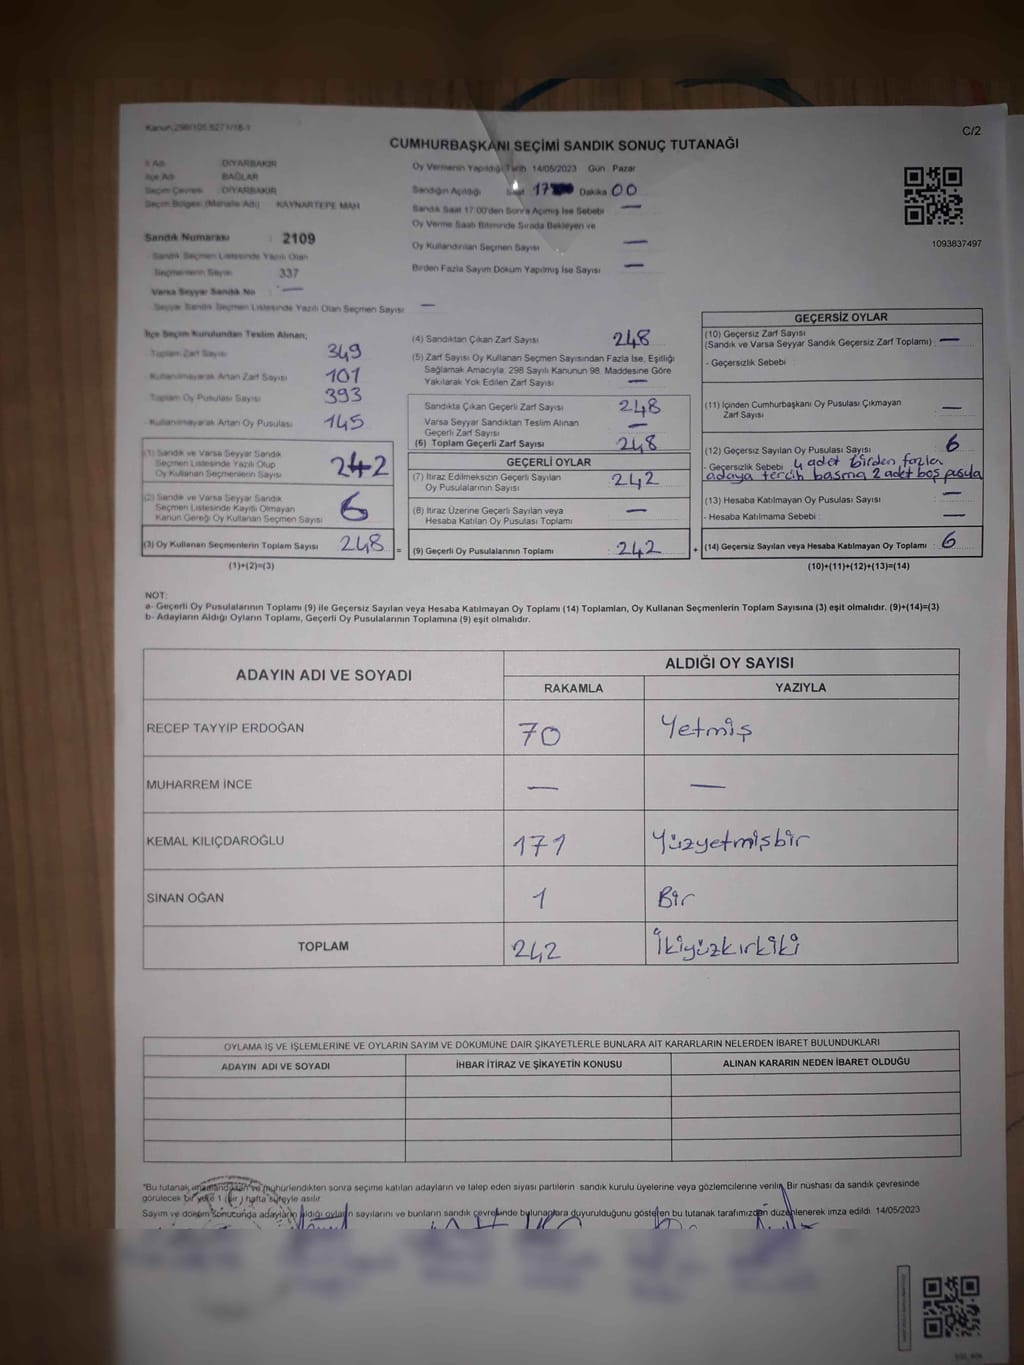 Kanun:298/105.6271/18-1
C/2
CUMHURBAŞKANI SEÇİMİ SANDIK SONUÇ TUTANAĞI
İl Adı : DİYARBAKIR
İlçe Adı : BAĞLAR
Seçim Çevresi : DİYARBAKIR
Seçim Bölgesi (Mahalle Adı) : KAYNARTEPE MAH
Sandık Numarası : 2109
Sandık Seçmen Listesinde Yazılı Olan
Seçmenlerin Sayısı : 337
Varsa Seyyar Sandık No : —
Seyyar Sandık Seçmen Listesinde Yazılı Olan Seçmen Sayısı : —
Oy Vermenin Yapıldığı Tarih 14/05/2023 Gün Pazar
Sandığın Açıldığı Saat 17 Dakika 00
Sandık Saat 17:00'den Sonra Açılmış İse Sebebi —
Oy Verme Saati Bitiminde Sırada Bekleyen ve
Oy Kullandırılan Seçmen Sayısı —
Birden Fazla Sayım Döküm Yapılmış İse Sayısı —
1093837497
İlçe Seçim Kurulundan Teslim Alınan;
Toplam Zarf Sayısı 349
Kullanılmayarak Artan Zarf Sayısı 101
Toplam Oy Pusulası Sayısı 393
Kullanılmayarak Artan Oy Pusulası 145
(1) Sandık ve Varsa Seyyar Sandık
Seçmen Listesinde Yazılı Olup
Oy Kullanan Seçmenlerin Sayısı 242
(2) Sandık ve Varsa Seyyar Sandık
Seçmen Listesinde Kayıtlı Olmayan
Kanun Gereği Oy Kullanan Seçmen Sayısı 6
(3) Oy Kullanan Seçmenlerin Toplam Sayısı 248 =
(1)+(2)=(3)
(4) Sandıktan Çıkan Zarf Sayısı : 248
(5) Zarf Sayısı Oy Kullanan Seçmen Sayısından Fazla İse, Eşitliği
Sağlamak Amacıyla, 298 Sayılı Kanunun 98. Maddesine Göre
Yakılarak Yok Edilen Zarf Sayısı : —
Sandıkta Çıkan Geçerli Zarf Sayısı : 248
Varsa Seyyar Sandıktan Teslim Alınan
Geçerli Zarf Sayısı : —
(6) Toplam Geçerli Zarf Sayısı : 248
GEÇERLİ OYLAR
(7) İtiraz Edilmeksizin Geçerli Sayılan
Oy Pusulalarının Sayısı : 242
(8) İtiraz Üzerine Geçerli Sayılan veya
Hesaba Katılan Oy Pusulası Toplamı : —
(9) Geçerli Oy Pusulalarının Toplamı : 242 +
GEÇERSİZ OYLAR
(10) Geçersiz Zarf Sayısı
(Sandık ve Varsa Seyyar Sandık Geçersiz Zarf Toplamı) : —
- Geçersizlik Sebebi :
(11) İçinden Cumhurbaşkanı Oy Pusulası Çıkmayan
Zarf Sayısı : —
(12) Geçersiz Sayılan Oy Pusulası Sayısı : 6
- Geçersizlik Sebebi : 4 adet birden fazla
adaya tercih basma 2 adet boş pusula
(13) Hesaba Katılmayan Oy Pusulası Sayısı : —
- Hesaba Katılmama Sebebi : —
(14) Geçersiz Sayılan veya Hesaba Katılmayan Oy Toplamı : 6
(10)+(11)+(12)+(13)=(14)
NOT:
a- Geçerli Oy Pusulalarının Toplamı (9) ile Geçersiz Sayılan veya Hesaba Katılmayan Oy Toplamı (14) Toplamları, Oy Kullanan Seçmenlerin Toplam Sayısına (3) eşit olmalıdır. (9)+(14)=(3)
b- Adayların Aldığı Oyların Toplamı, Geçerli Oy Pusulalarının Toplamına (9) eşit olmalıdır.
ADAYIN ADI VE SOYADI ALDIĞI OY SAYISI
RAKAMLA YAZIYLA
RECEP TAYYİP ERDOĞAN 70 Yetmiş
MUHARREM İNCE — —
KEMAL KILIÇDAROĞLU 171 Yüzyetmişbir
SİNAN OĞAN 1 Bir
TOPLAM 242 İkiyüzkırkiki
OYLAMA İŞ VE İŞLEMLERİNE VE OYLARIN SAYIM VE DÖKÜMÜNE DAİR ŞİKAYETLERLE BUNLARA AİT KARARLARIN NELERDEN İBARET BULUNDUKLARI
ADAYIN ADI VE SOYADI İHBAR İTİRAZ VE ŞİKAYETİN KONUSU ALINAN KARARIN NEDEN İBARET OLDUĞU
"Bu tutanak imzalandıktan ve mühürlendikten sonra seçime katılan adayların ve talep eden siyasi partilerin sandık kurulu üyelerine veya gözlemcilerine verilir. Bir nüshası da sandık çevresinde
görülecek bir yere 1 (bir) hafta süreyle asılır.
Sayım ve döküm sonucunda adayların aldığı oyların sayılarını ve bunların sandık çevresinde bulunanlara duyurulduğunu gösteren bu tutanak tarafımızdan düzenlenerek imza edildi. 14/05/2023